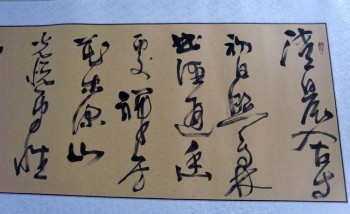 清晨入古寺
初日照高林
曲徑通幽
處禪房
花木深山
光悅鳥性